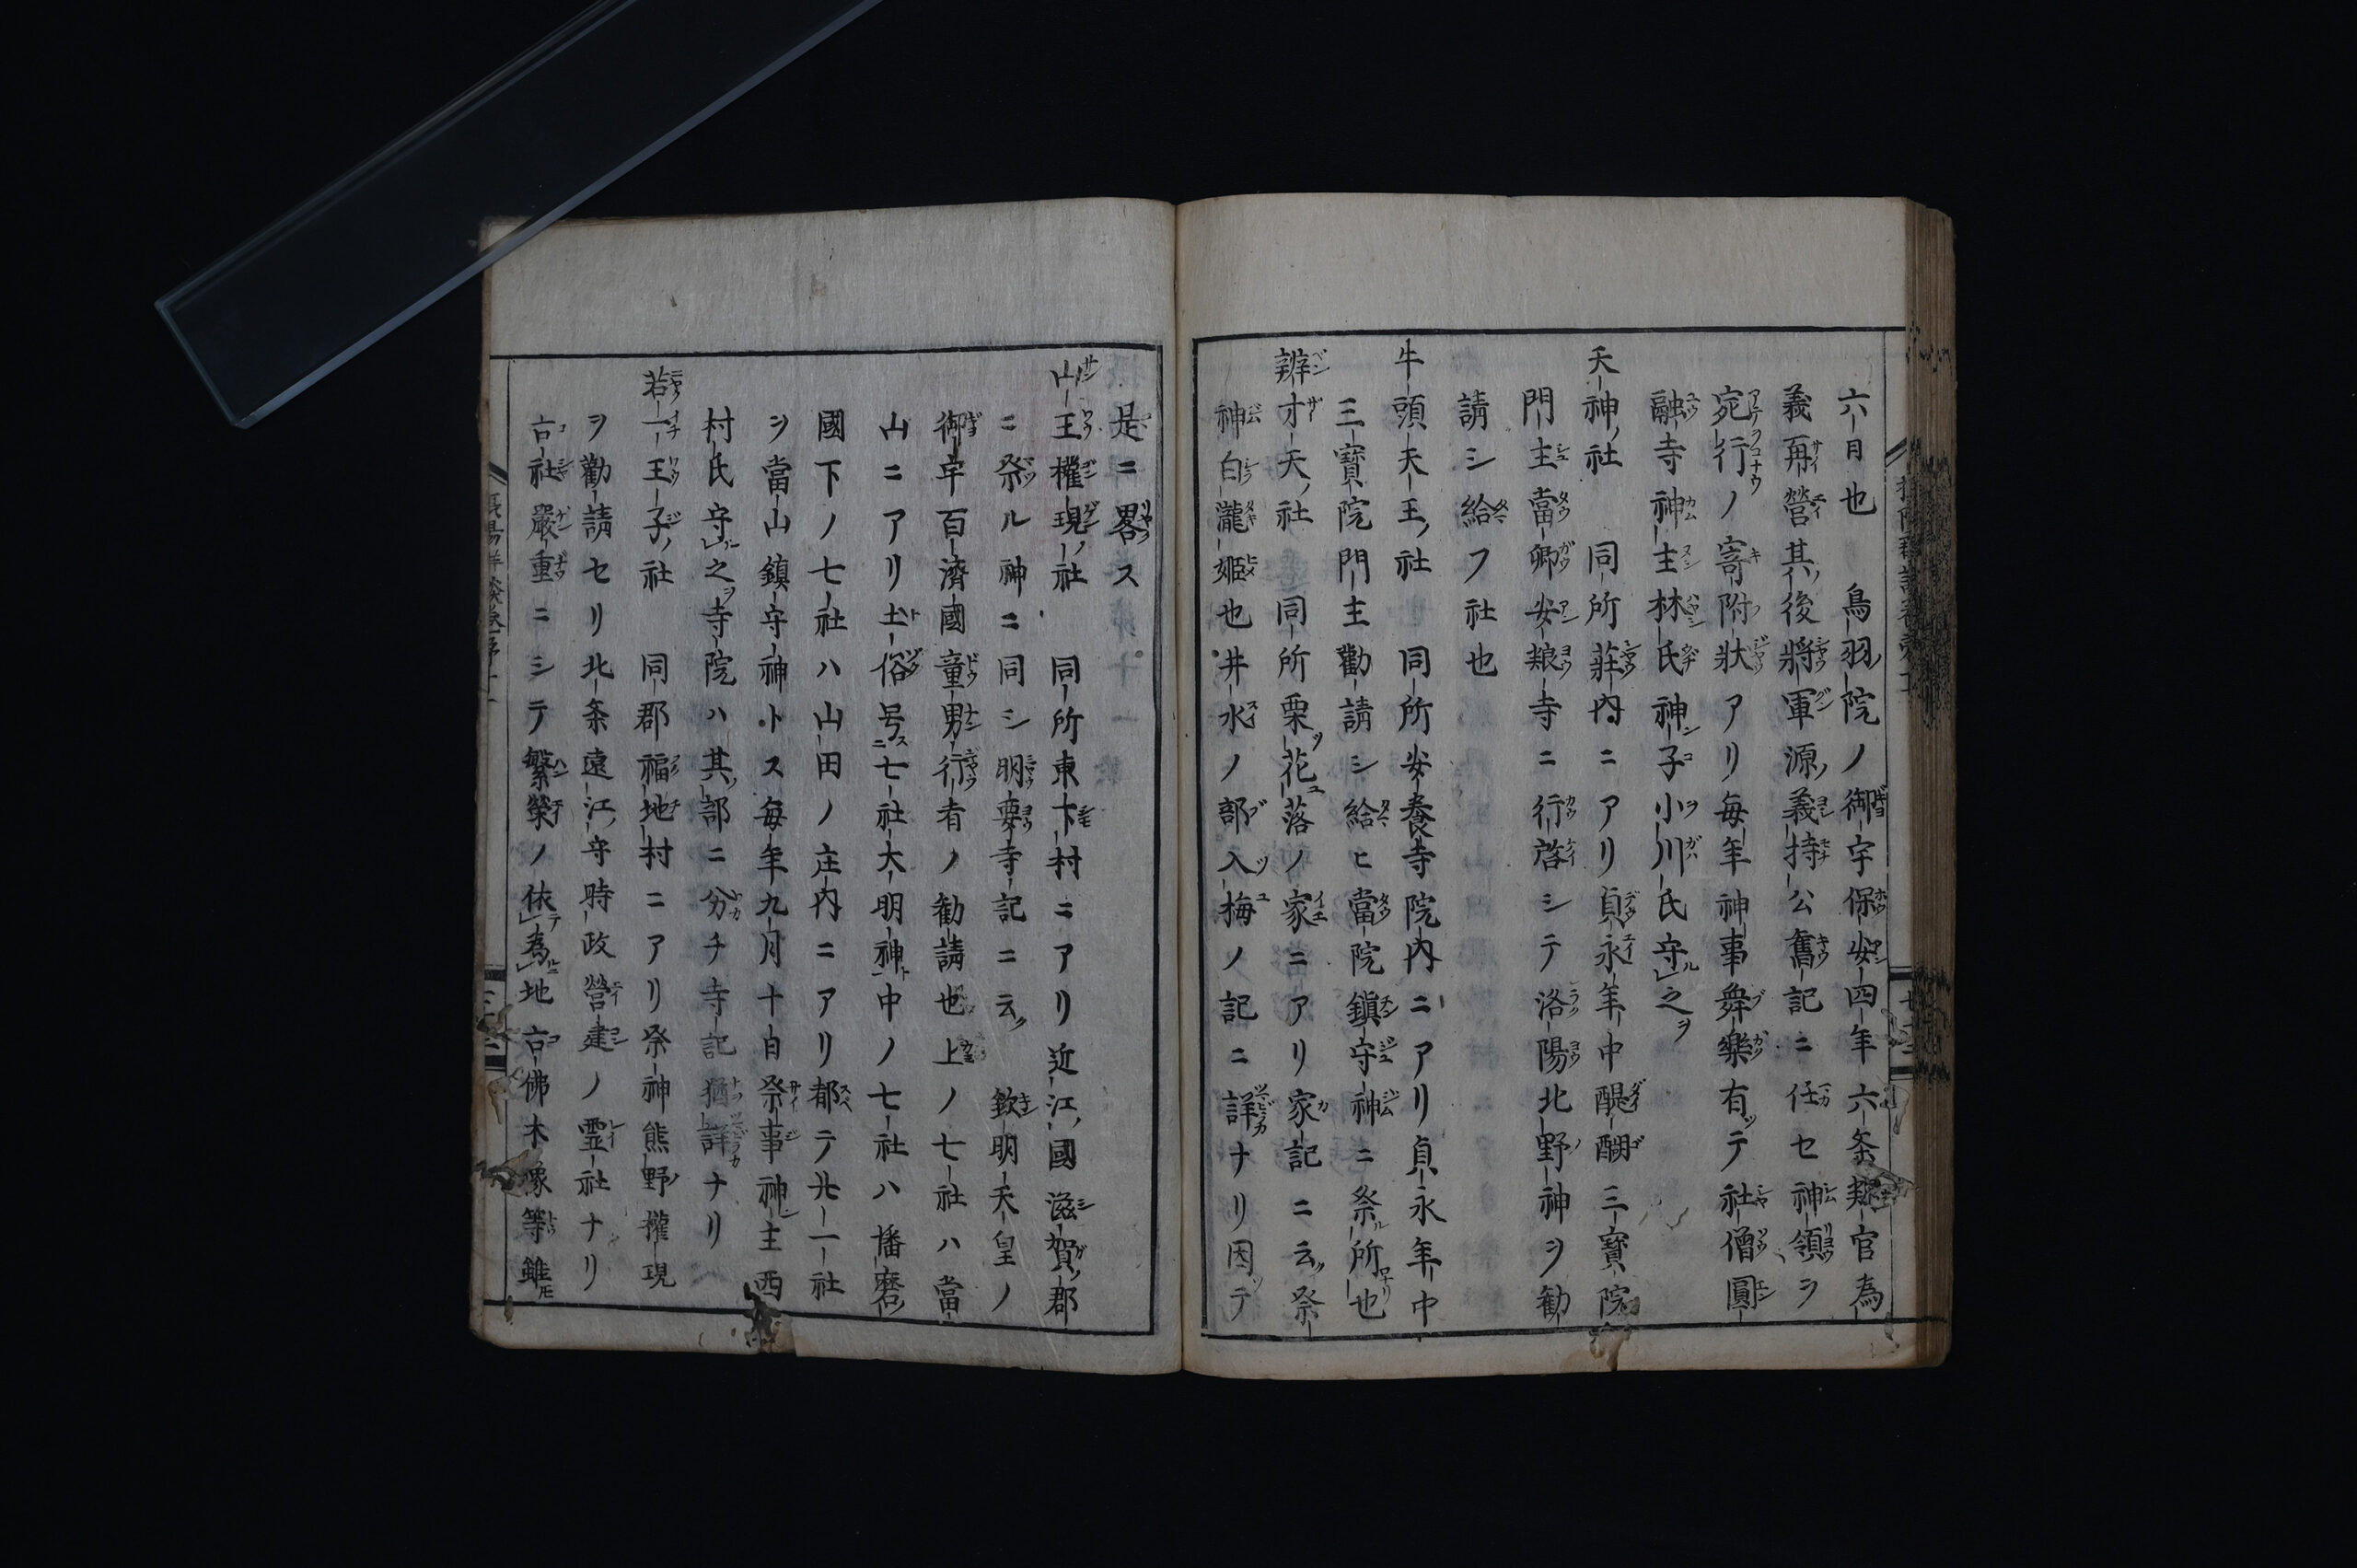 六月也　鳥羽ノ院ノ御宇保安四年六条判官為
義再營其ノ後將軍源ノ義持公舊記ニ任セ神領ヲ
宛行ノ寄附狀アリ毎年神事舞樂有テ社僧圓
融寺神主林氏神子小川氏守之ヲ
天神ノ社　同所莊内ニアリ貞永年中醍醐三寳院
門主當卿安粮寺ニ行啓シテ洛陽北野ノ神ヲ勧
請シ給フ社也
牛頭天王ノ社　同所安養寺院内ニアリ貞永年中
三寳院門主勸請シ給ヒ當院鎭守神ニ祭ル所也
辨才天ノ社　同所栗花落ノ家ニアリ家記ニ云祭
神白瀧姫也井水ノ部入梅ノ記ニ詳ナリ因テ
是ニ畧ス
山王權現ノ社　同所東下村ニアリ近江ノ國滋賀ノ郡
ニ祭ル神ニ同シ明要寺記ニ云　欽明天皇ノ
御宇百濟國童男行者ノ勧請也上ノ七社ハ當
山ニアリ土俗号ス七社大明神ト中ノ七社ハ播磨
國下ノ七社ハ山田ノ庄内ニアリ都テ廿一社
ヲ當山鎮守神トス毎年九月十日祭事神主西
村氏守之ヲ寺院ハ其ノ部ニ分チ寺記猶詳ナリ
若一王子ノ社　同郡福地村ニアリ祭神熊野權現
ヲ勸請セリ北条遠江ノ守時政營建ノ霊社ナリ
古社嚴重ニシテ繁榮ノ依テ為ルニ地古佛木像等雖モ